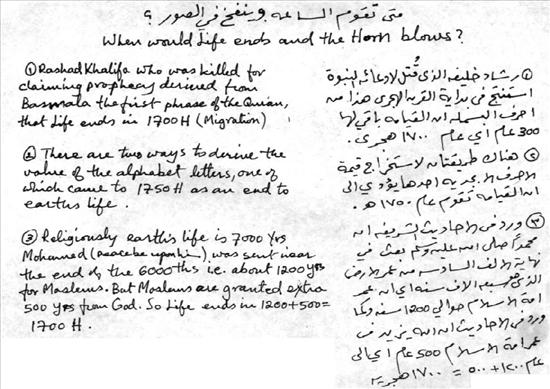 متى تقوم الساعه وينفخ في الصور ؟
When would Life ends and the Horn blows?
① Rashad Khalifa who was killed for
claiming prophecy derived from
Basmala the first phrase of the Quran,
that Life ends in 1700H (Migration)
② There are two ways to derive the
value of the alphabet letters, one of
which came to 1750 H as an end to
earths life.
③ Religiously earth's life is 7000 yrs
Mohamed (peace be upon him), was sent near
the end of the 6000ths i.e. about 1200 yrs
for Moslems. But Moslems are granted extra
500 yrs from God. So Life ends in 1200+500=
1700 H.
① رشاد خليفه الذي قُتل لادعائه النبوة
استنتج في بداية القرن الهجري هذا من
احرف البسمله ان القيامه باقي لها
300 عام اي عام ١٧٠٠ هجري.
② هناك طريقتان لاستخراج قيمة
الاحرف الابجديه احدها يؤدي الى
ان القيامه تقوم عام ١٧٥٠ هـ.
③ ورد في الاحاديث الشريفه ان
محمدً صلى الله عليه وسلم بعث في
نهاية الالف السادسه من عمر الارض
الذي هو سبعة الاف سنه اي ان عمر
امة الاسلام حوالي 1200 سنه وكما
ورد في الاحاديث ان الله يزيد في
عمر امة الاسلام 500 عام اي الى
عام ١٢٠٠ + ٥٠٠ = ١٧٠٠ هجريه